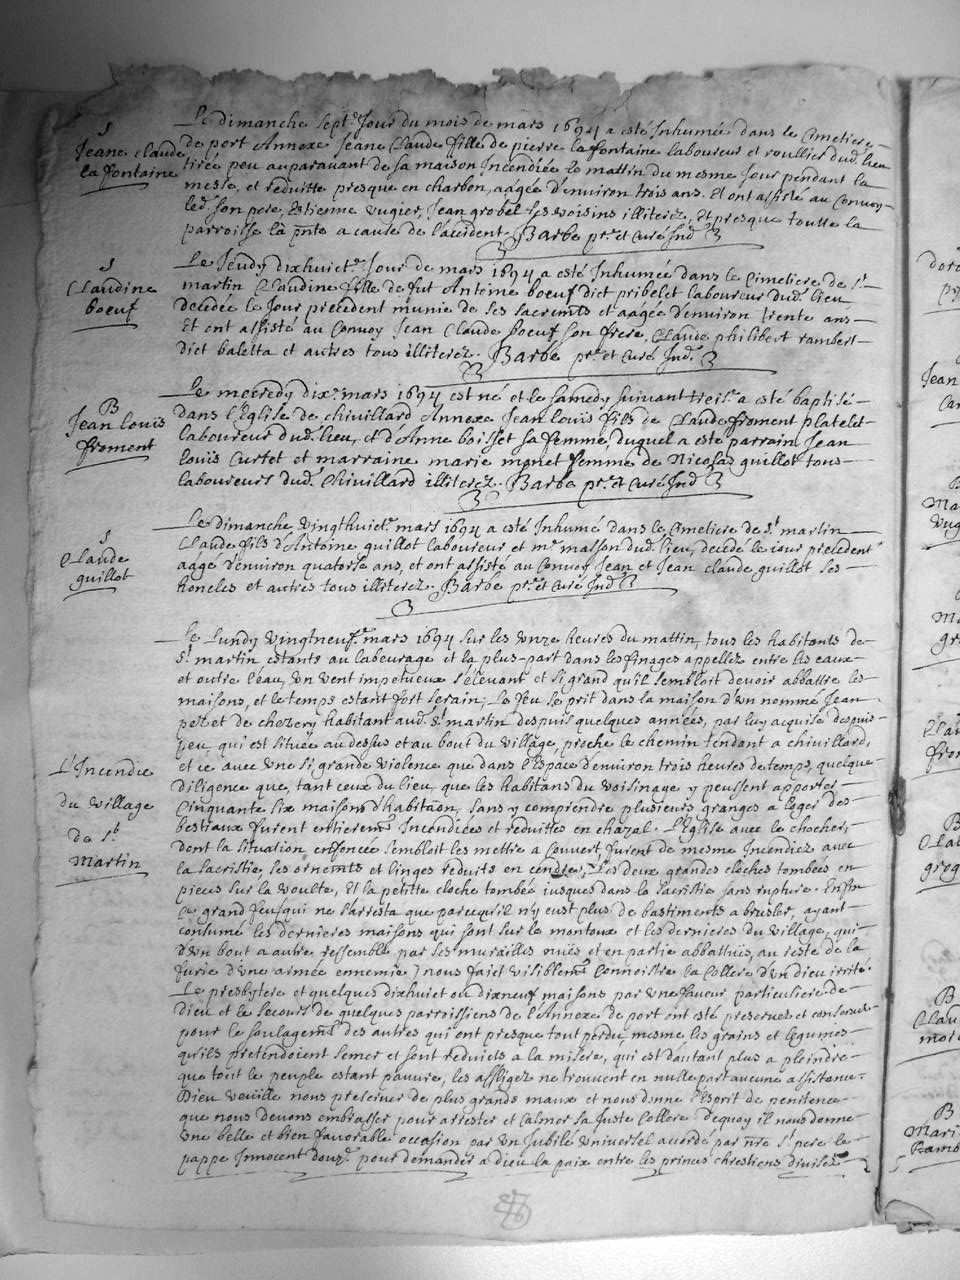 S
Jeane Claude
la fontaine
Le dimanche sept.e Jour du mois de mars 1694 a esté Inhumée dans le Cimetiere
de port Annexe Jeane Claude fille de pierre la fontaine laboureur et roullier dud. lieu
tirée peu auparauant de sa maison Incendiée le mattin du mesme Jour pendant la
messe, et reduitte presque en charbon, aagée d'enuiron trois ans. Et ont assisté au Conuoy
led. son pere, Estienne vugier, Jean grobel ses voisins illiterez, Et presque toutte la
parroisse là pnte a cause de l'accident. Barbe pr.e et Curé Ind.
S
Claudine
boeuf
Le Jeudy dixhuiet.e Jour de mars 1694 a esté Inhumée dans le Cimetiere de s.t
martin Claudine fille de fut Antoine boeuf dict pribelet laboureur dud. lieu
decedée le Jour precedent munie de ses sacremts et aagée d'enuiron trente ans
Et ont assisté au Conuoy Jean Claude boeuf son frere, Claude philibert rambert
dict baletta et autres tous illiterez. Barbe pr.e et Curé Ind.
B
Jean louïs
froment
Le mecredy dix.e mars 1694 est né et le samedy suiuant treis.e a esté baptisé
dans l'Eglise de chiuillard Annexe Jean louïs fils de Claude froment platelet
laboureur dud. lieu, et d'Anne boisset sa femme duquel a este parrain Jean
louis Curtet et marraine marie monet femme de Nicolas guillot tous
laboureurs dud. Chiuillard illiterez. Barbe pr.e et Curé Ind
S
Claude
guillot
Le dimanche vingthuiet.e mars 1694 a esté Inhumé dans le Cimetiere de s.t martin
Claude fils d'Antoine guillot laboureur et m.e masson dud. lieu, decedé le iour precedent
aagé d'enuiron quatorse ans, et ont assisté au Conuoy Jean et Jean claude guillot ses
honcles et autres tous illiterez. Barbe pr.e et Curé Ind
L'Incendie
du village
de s.t
Martin
Le Lundy vingtneuf.e mars 1694 sur les vnze heures du mattin, tous les habitants de
s.t martin estants au labeurage et la plus-part dans les finages appellez entre les eaux
et outre l'eau, vn vent impetueux s'eleuant et si grand qu'il sembloit deuoir abbattre les
maisons, et le temps estant fort serain; Le feu se prit dans la maison d'vn nommé Jean
perret de chezery habitant aud. s.t martin despuis quelques années, par luy acquise despuis
peu, qui est située au dessus et au bout du village, proche le chemin tendant a chiuillard,
et ce auec vne si grande violence que dans l'Espace d'enuiron trois heures de temps, quelque
diligence que, tant ceux du lieu, que les habitans du voisinage y peussent apporter
Cinquante six maisons d'habitaõn, sans y comprendre plusieurs granges a loger des
bestiaux furent entierem.t Incendiées et reduittes en chazal. L'Eglise auec le clocher,
dont la situation enfoncée sembloit les mettre a Couuert, furent de mesme Incendiez auec
la sacristie, les ornemts et linges reduits en cendre, Les deux grandes cloches tombées en
pieces sur la voulte, Et la petitte cloche tombée jusques dans la sacristie sans rupture. Enfin
Ce grand feu qui ne s'arresta que parcequ'il n'y eust plus de bastiments a brusler, ayant
consumé les dernieres maisons qui sont sur le montoux et les dernieres du village, qui
d'vn bout a autre ressemble par ses murailles nuës et en partie abbattües, au reste de la
furie d'vne armée ennemie, nous faict visiblem.t Connoistre la Collere d'vn dieu irrité.
Le presbytere et quelques dixhuiet ou dixneuf maisons par vne faueur particuliere de
Dieu et le secours de quelques parroissiens de l'Annexe de port ont esté preseruees et conseruees
pour le soulagem.t des autres qui ont presque tout perdu mesme les grains et legumes
qu'ils pretendoient semer et sont reduicts a la misere, qui est d'autant plus a pleindre
que tout le peuple estant pauure, les affligez ne trouuent en nulle part aucune assistance.
Dieu veuille nous preseruer de plus grands maux et nous donne l'Esprit de penitence
que nous deuons embrasser pour arrester et Calmer sa Juste Collere dequoy il nous donne
vne belle et bien fauorable occasion par vn Jubilé vniuersel accordé par nre s.t pere le
pappe Innocent douz.e pour demander a dieu la paix entre les princes chrestiens diuisez